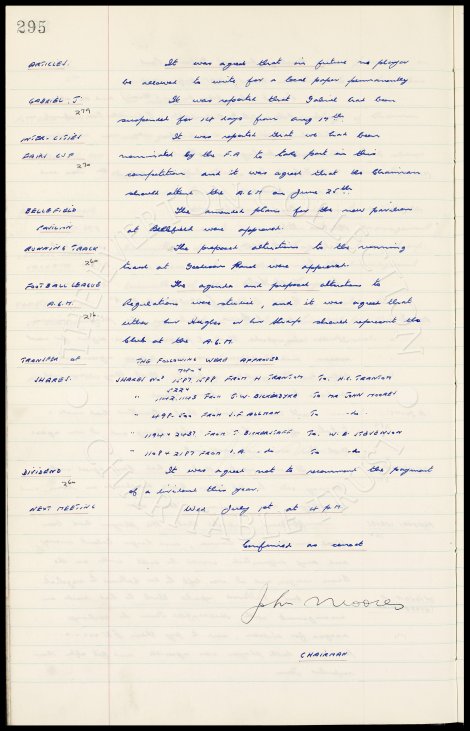 295
ARTICLES. It was agreed that in future no player
be allowed to write for a local paper permanently
GABRIEL. J. 279 It was reported that Gabriel had been
suspended for 14 days from Aug 17th
INTER-CITIES It was reported that we had been
FAIRS CUP 270 nominated by the F.A to take part in this
competition and it was agreed that the Chairman
should attend the A.G.M on June 25th.
BELLEFIELD The amended plans for the new pavilion
PAVILION at Bellefield were approved.
RUNNING TRACK 260 The proposed alterations to the running
track at Goodison Road were approved.
FOOTBALL LEAGUE The agenda and proposed alterations to
A.G.M. 216 Regulations were studied, and it was agreed that
either Mr Hughes or Mr Sharp should represent the
Club at the A.G.M.
TRANSFER OF THE FOLLOWING WERE APPROVED
SHARES. SHARES Nos 1587. 1588 FROM H TRANTOM TO. H.C. TRANTOM
" 1142. 1143 FROM T. W. TO MR JOHN MOORES
" 498-500 FROM J.F ALLMAN TO -do-
" 1194 & 2487 FROM T BICKERSTAFF TO. W. B STEVENSON
" 1169 & 2197 FROM -do TO -do
DIVIDEND 260 It was agreed not to recommend the payment
of a dividend this year.
NEXT MEETING Wed July 1st at 4 PM.
Confirmed as correct
John Moores
CHAIRMAN
THE EVERTON COLLECTION
CHARITABLE TRUST